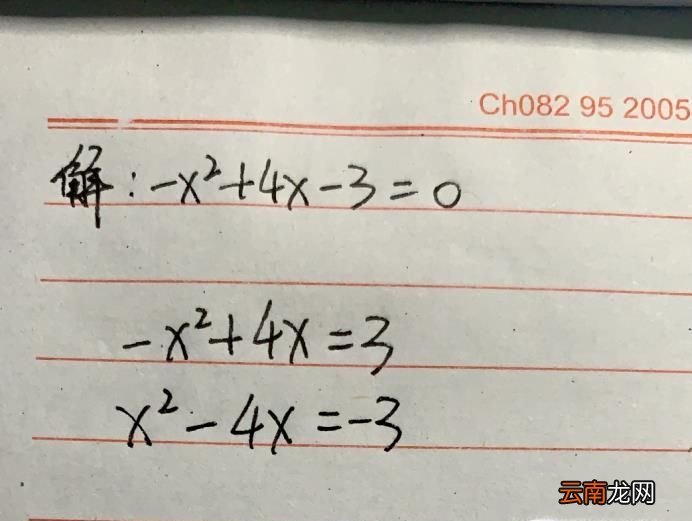 Ch082 95 2005
解:-x²+4x-3=0
-x²+4x=3
x²-4x=-3
云南龙网